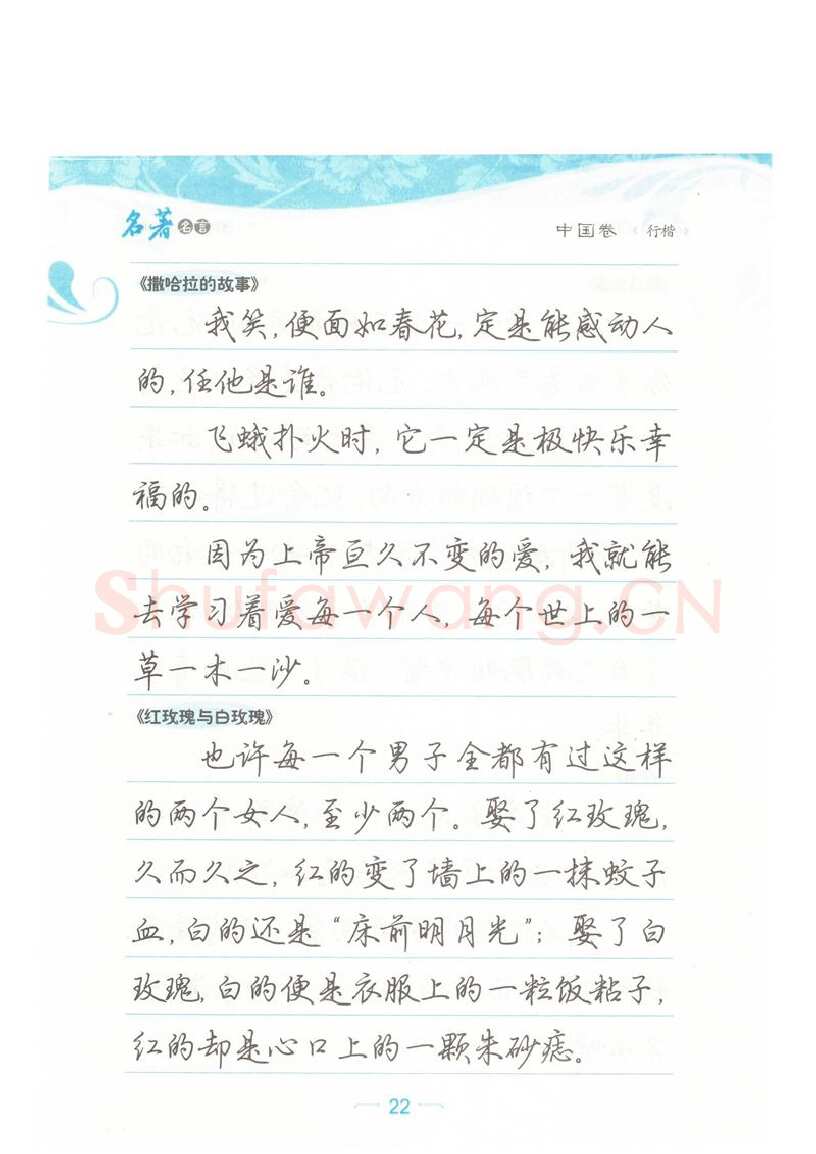 名著名言
中国卷 行楷
《撒哈拉的故事》
我笑,便面如春花,定是能感动人
的,任他是谁。
飞蛾扑火时,它一定是极快乐幸
福的。
因为上帝亘久不变的爱,我就能
去学习着爱每一个人,每个世上的一
草一木一沙。
《红玫瑰与白玫瑰》
也许每一个男子全都有过这样
的两个女人,至少两个。娶了红玫瑰,
久而久之,红的变了墙上的一抹蚊子
血,白的还是“床前明月光”;娶了白
玫瑰,白的便是衣服上的一粒饭粘子,
红的却是心口上的一颗朱砂痣。
22
Shufawang.CN